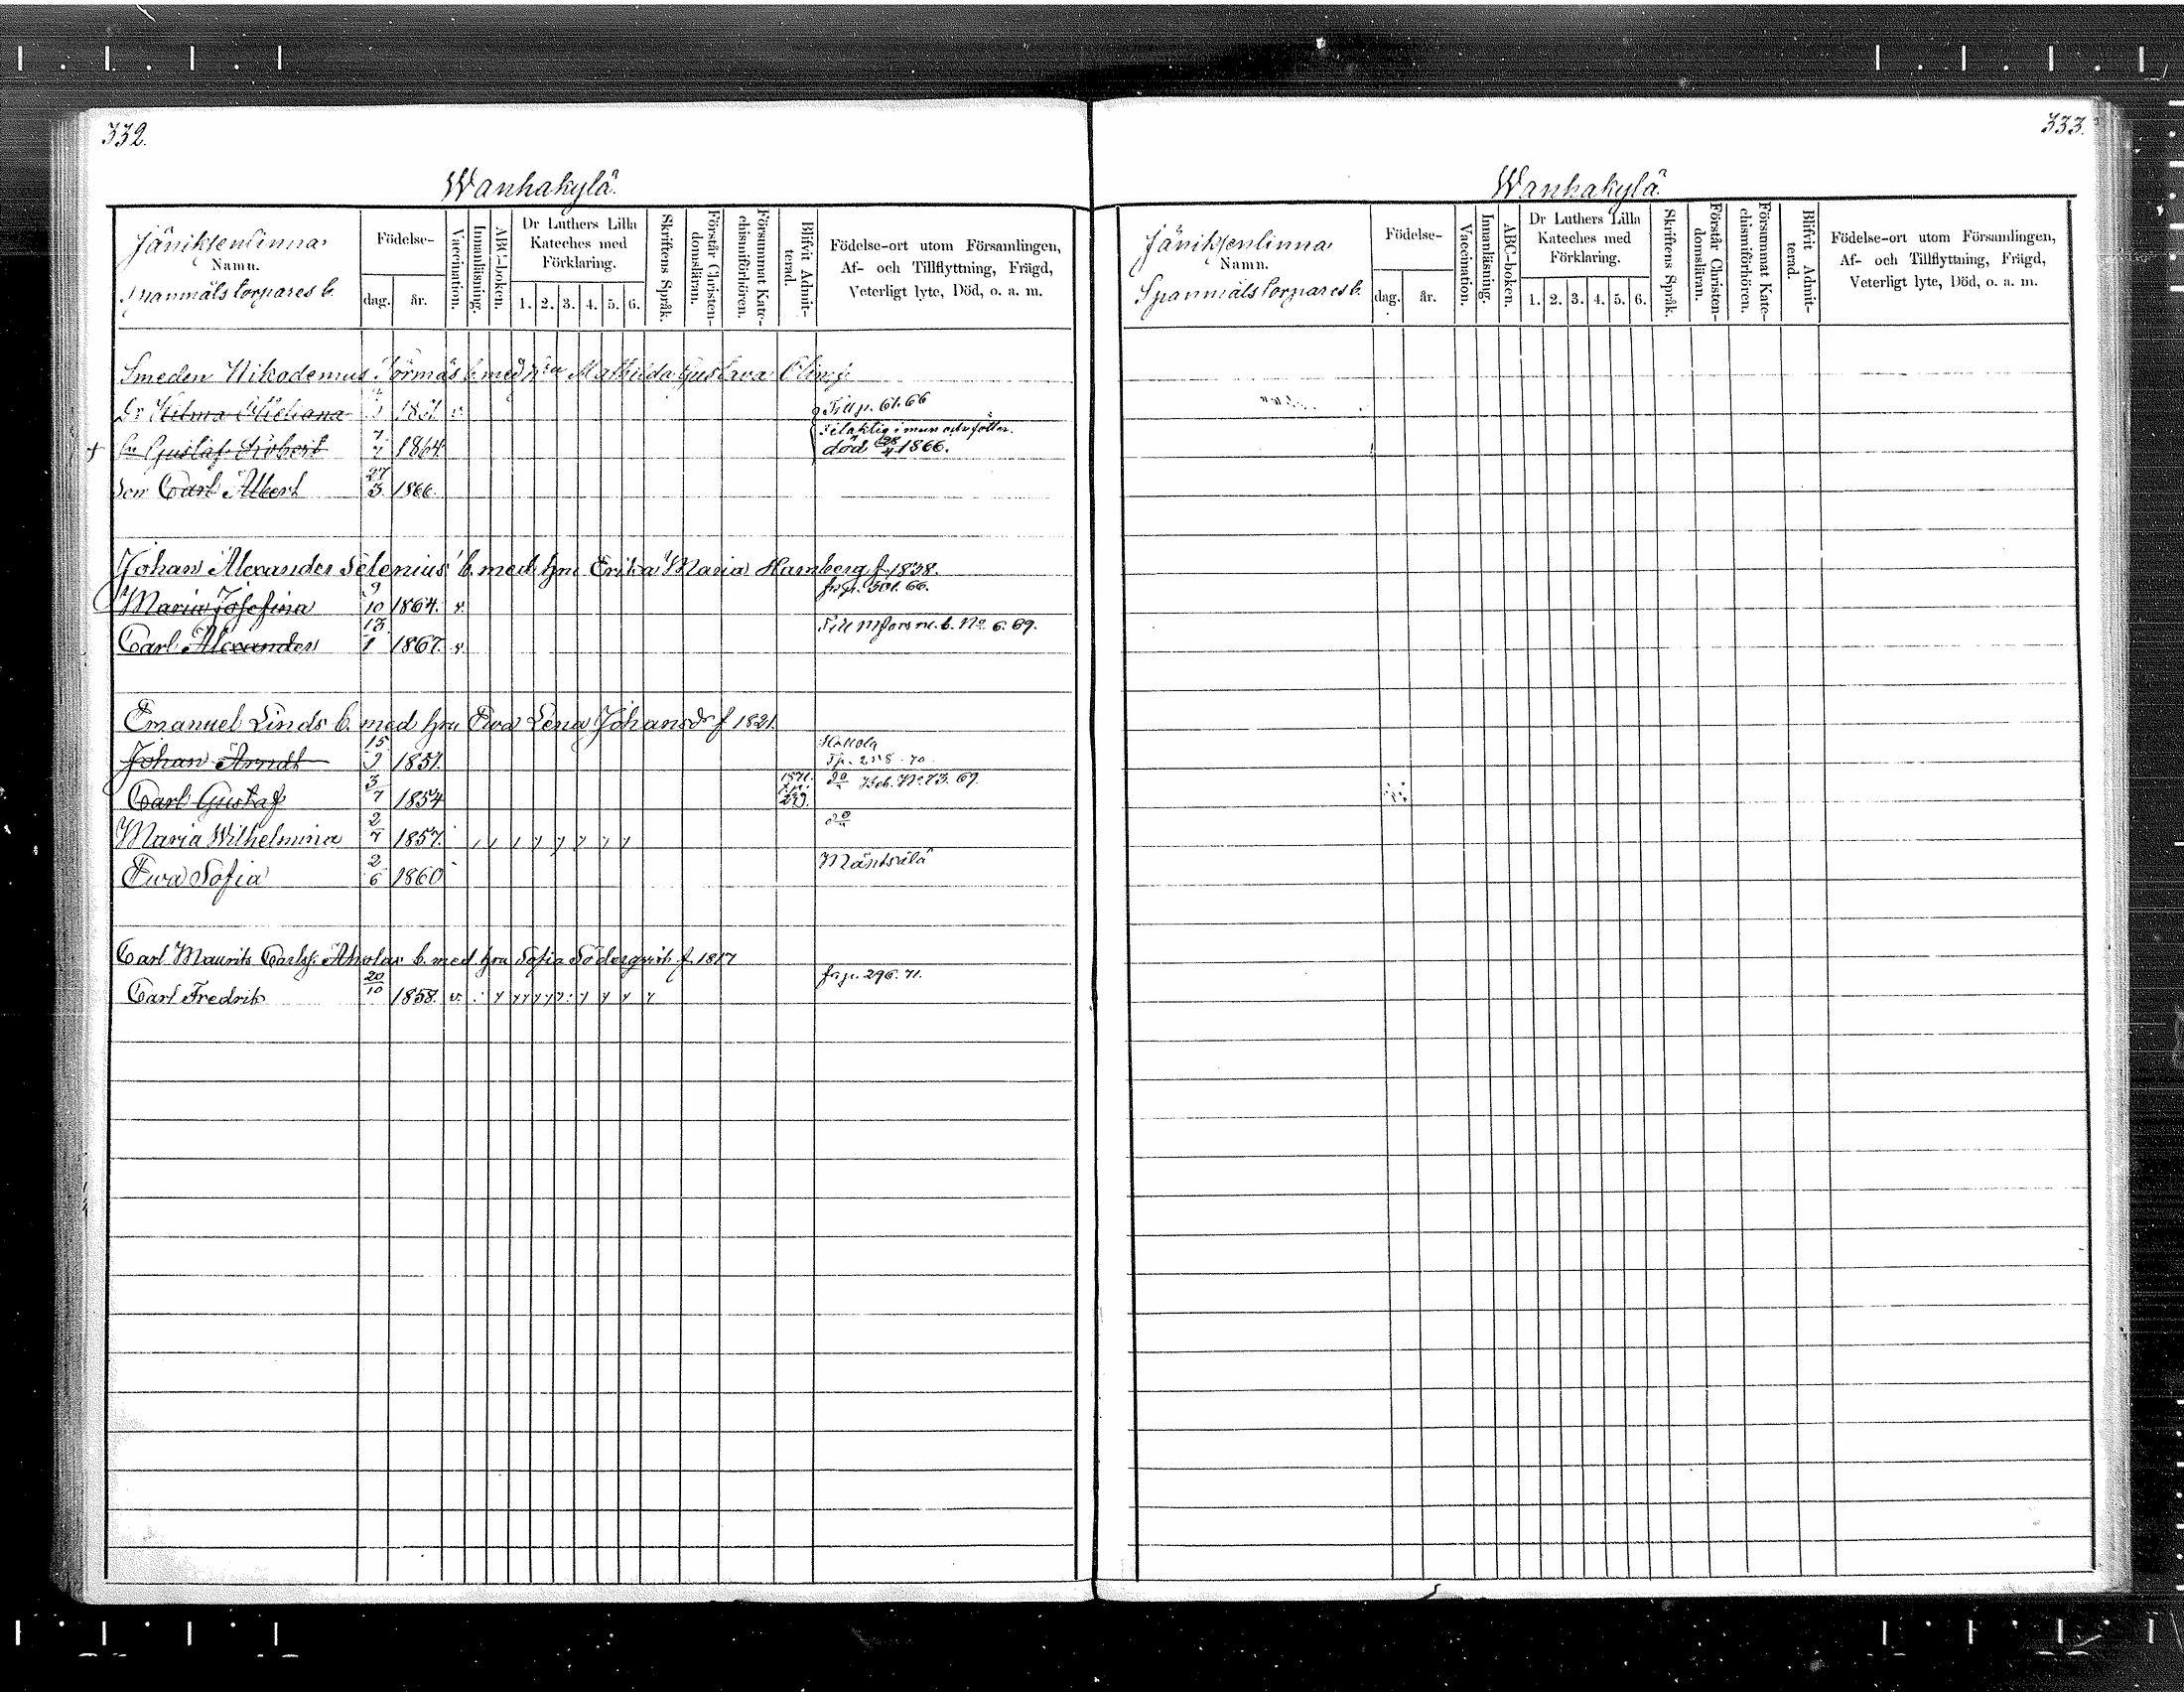 332.
Wanhakylä.
Jäniksenlinna
Namn.
Spanmålstorpares b.
Födelse-
dag. år.
Vaccination.
Innanläsning.
ABC-boken.
Dr Luthers Lilla
Kateches med
Förklaring.
1. 2. 3. 4. 5. 6.
Skriftens Språk.
Förstår Christen-
domsläran.
Försummat Kate-
chismiförhören.
Blifvit Admit-
terad.
Födelse-ort utom Församlingen,
Af- och Tillflyttning, Frägd,
Veterligt lyte, Död, o. a. m.
Smeden Nikodemus b. med hru Mathilda Gustava
Dr Hilma 1861. v. Till p. 61. 66
Sn Gustaf Robert 7/7 1864. i mun och fötter.
död 28/4 1866.
Son Carl Albert 27/3 1866.
Johan Alexander Selenius b. med hru Erika Maria Hamberg f. 1838.
Maria Josefina 9/10 1864. v. fr. p. 501. 66.
Carl Alexander 13/1 1867. v. Till No 6. 69.
Emanuel Linds b. med hru Ewa Lena Johansdr f 1821.
Johan Arndt 15/9 1851. Hollola
T. p. 258. 70
Carl Gustaf 3/7 1854 1871. do Beb. No 73. 69.
Maria Wilhelmina 2/7 1857. do
Ewa Sofia 2/6 1860 Mäntsälä
Carl Maurits Carlss. Aholas b. med hru Sofia Söderqvist f. 1817
Carl Fredrik 20/10 1858. v. fr. p. 296. 71.
333.
Wanhakylä.
Jäniksenlinna
Namn.
Spanmålstorpares b.
Födelse-
dag. år.
Vaccination.
Innanläsning.
ABC-boken.
Dr Luthers Lilla
Kateches med
Förklaring.
1. 2. 3. 4. 5. 6.
Skriftens Språk.
Förstår Christen-
domsläran.
Försummat Kate-
chismiförhören.
Blifvit Admit-
terad.
Födelse-ort utom Församlingen,
Af- och Tillflyttning, Frägd,
Veterligt lyte, Död, o. a. m.